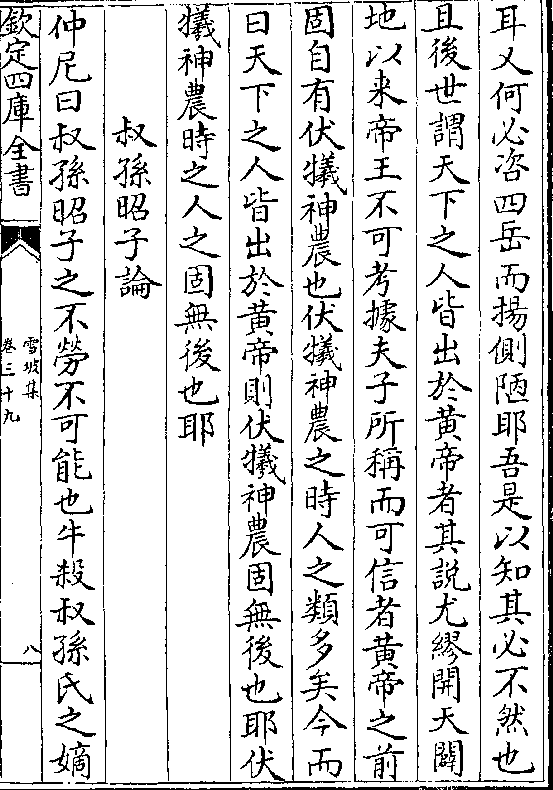 耳又何必咨四岳而揚側陋耶吾是以知其必不然也
且後世謂天下之人皆出於黄帝者其說尤繆開天闢
地以来帝王不可考據夫子所稱而可信者黄帝之前
固自有伏犧神農也伏犧神農之時人之類多矣今而
曰天下之人皆出於黄帝則伏犧神農固無後也耶伏
犧神農時之人之固無後也耶
叔孫昭子論
仲尼曰叔孫昭子之不勞不可能也牛殺叔孫氏之嫡
欽定四庫全書
雪坡集
卷三十九
八